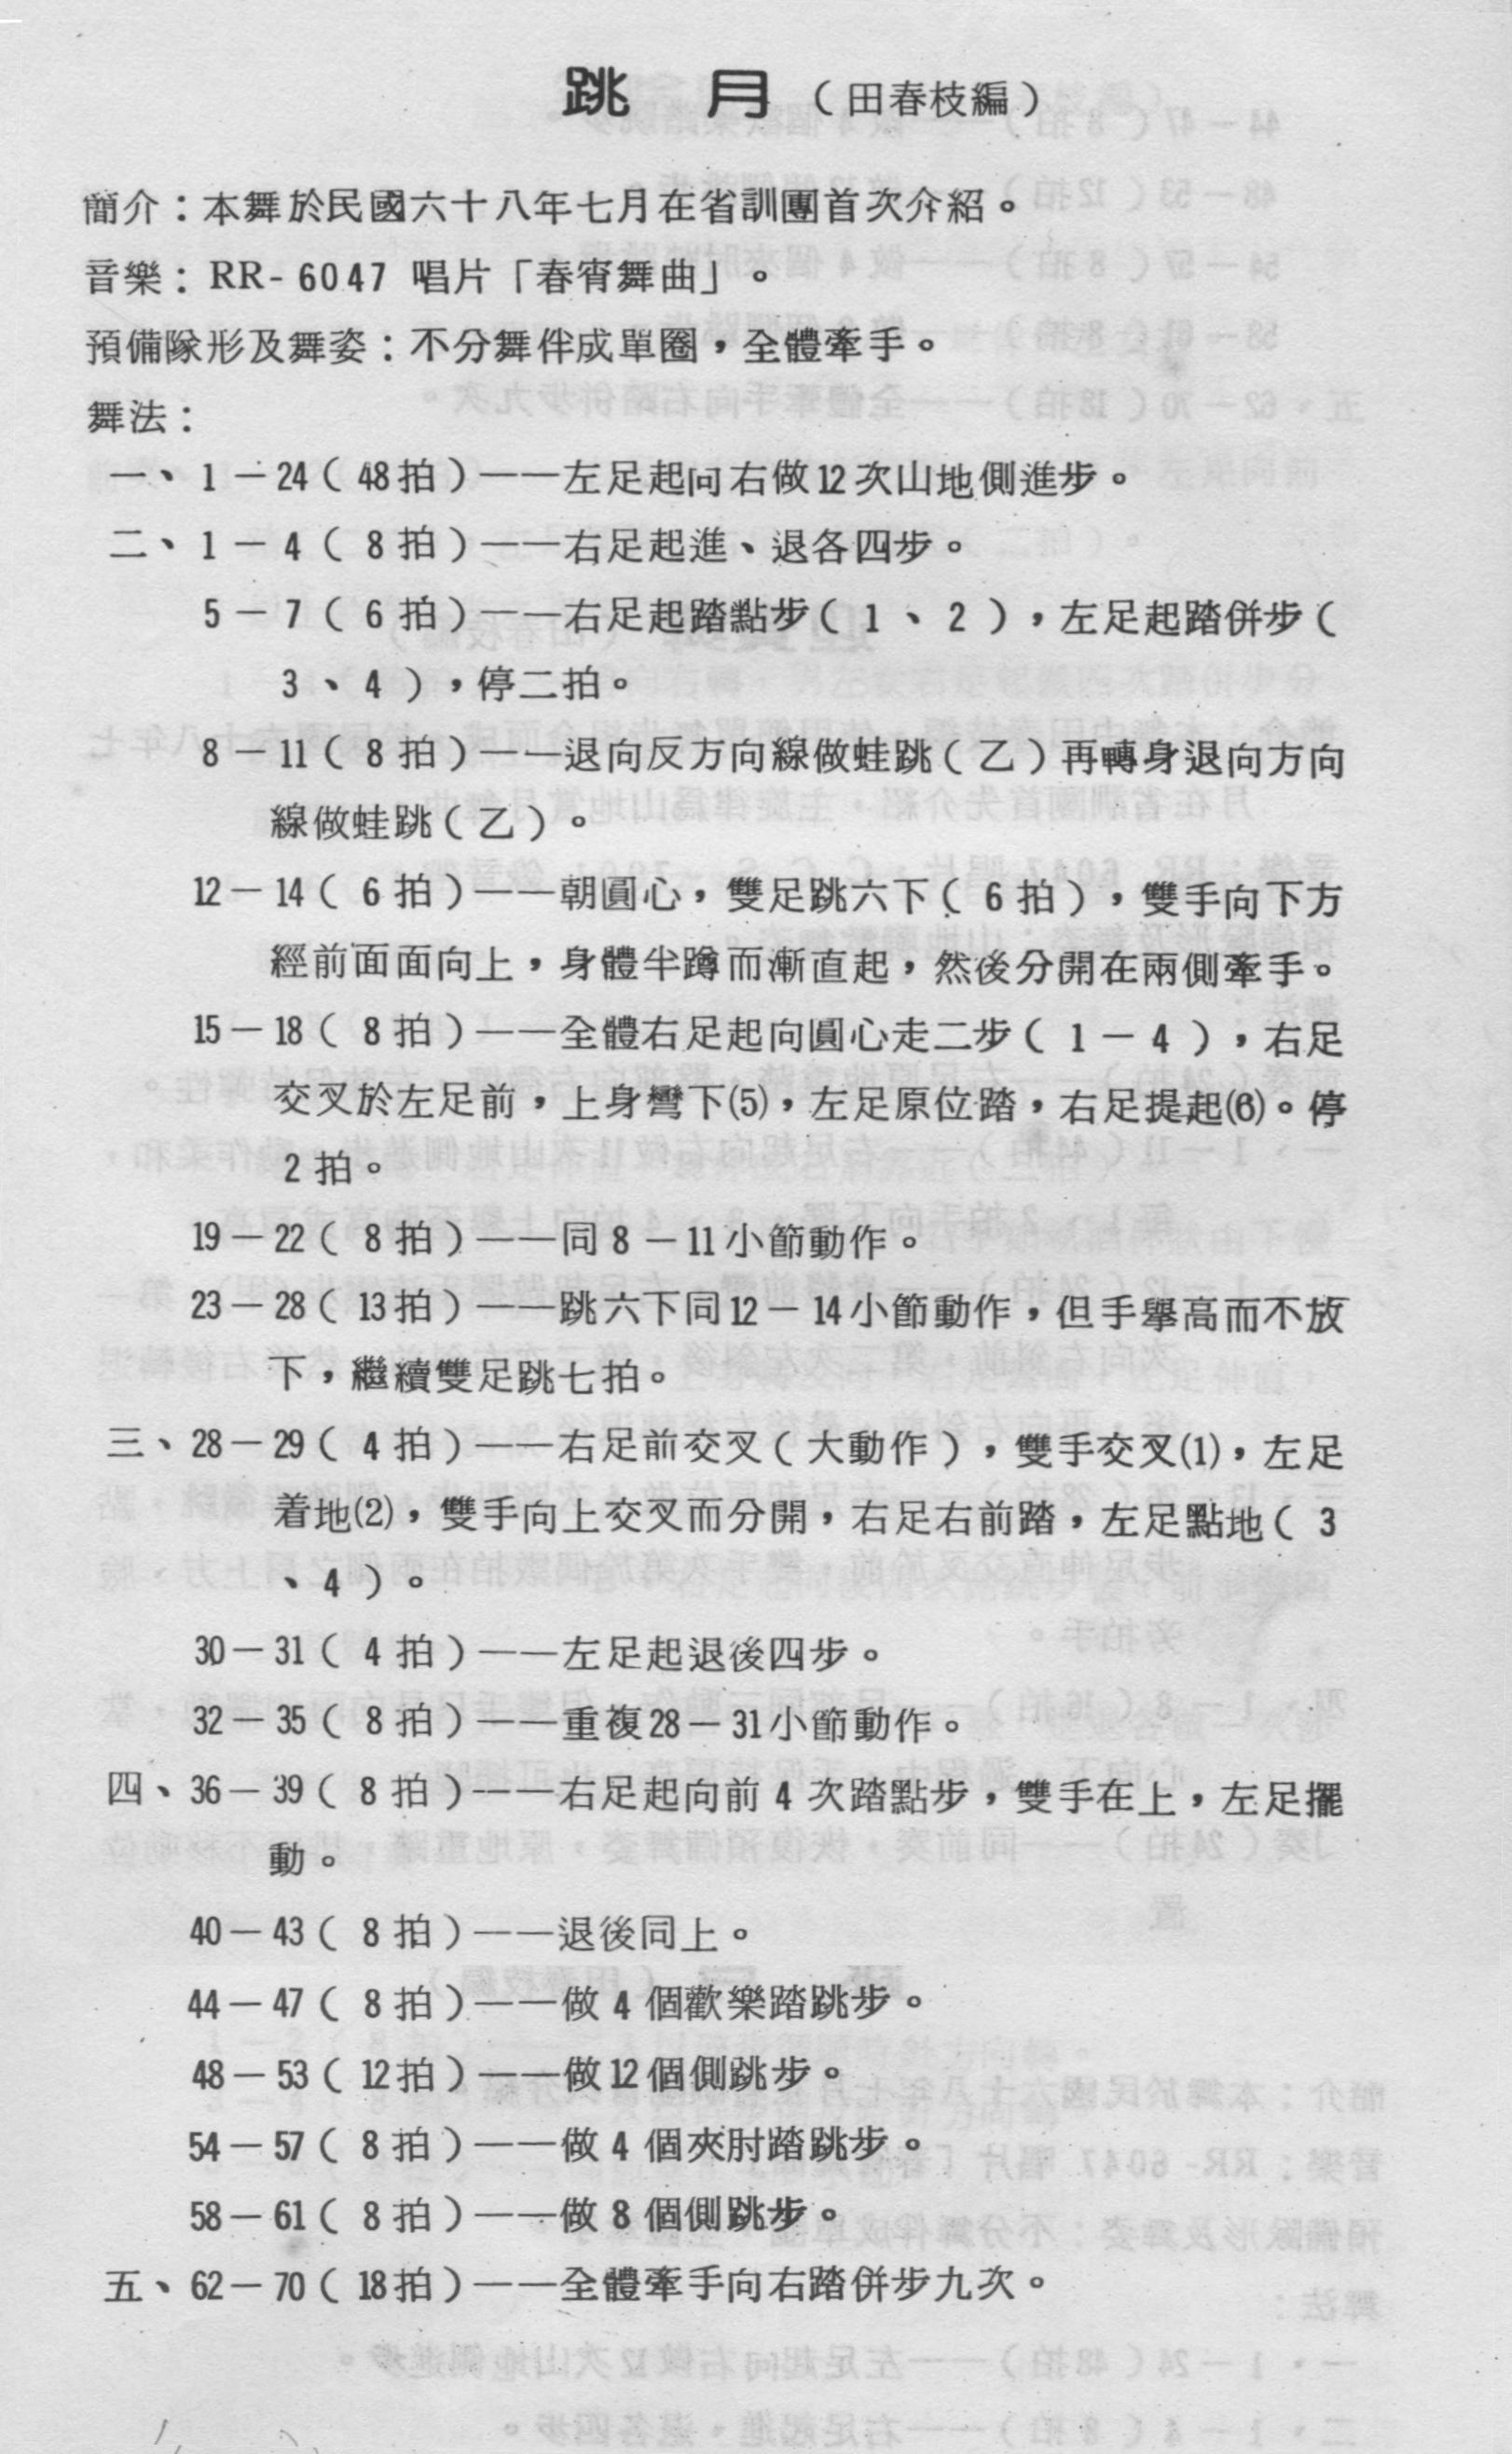 跳　月（田春枝編）
簡介：本舞於民國六十八年七月在省訓團首次介紹。
音樂：RR-6047 唱片「春宵舞曲」。
預備隊形及舞姿：不分舞伴成單圈，全體牽手。
舞法：
一、1－24（48拍）——左足起向右做12次山地側進步。
二、1－4（8拍）——右足起進、退各四步。
5－7（6拍）——右足起踏點步（1、2），左足起踏併步（
3、4），停二拍。
8－11（8拍）——退向反方向線做蛙跳（乙）再轉身退向方向
線做蛙跳（乙）。
12－14（6拍）——朝圓心，雙足跳六下（6拍），雙手向下方
經前面面向上，身體半蹲而漸直起，然後分開在兩側牽手。
15－18（8拍）——全體右足起向圓心走二步（1－4），右足
交叉於左足前，上身彎下⑸，左足原位踏，右足提起⑹。停
2拍。
19－22（8拍）——同8－11小節動作。
23－28（13拍）——跳六下同12－14小節動作，但手舉高而不放
下，繼續雙足跳七拍。
三、28－29（4拍）——右足前交叉（大動作），雙手交叉⑴，左足
着地⑵，雙手向上交叉而分開，右足右前踏，左足點地（3
、4）。
30－31（4拍）——左足起退後四步。
32－35（8拍）——重複28－31小節動作。
四、36－39（8拍）——右足起向前4次踏點步，雙手在上，左足擺
動。
40－43（8拍）——退後同上。
44－47（8拍）——做4個歡樂踏跳步。
48－53（12拍）——做12個側跳步。
54－57（8拍）——做4個夾肘踏跳步。
58－61（8拍）——做8個側跳步。
五、62－70（18拍）——全體牽手向右踏併步九次。